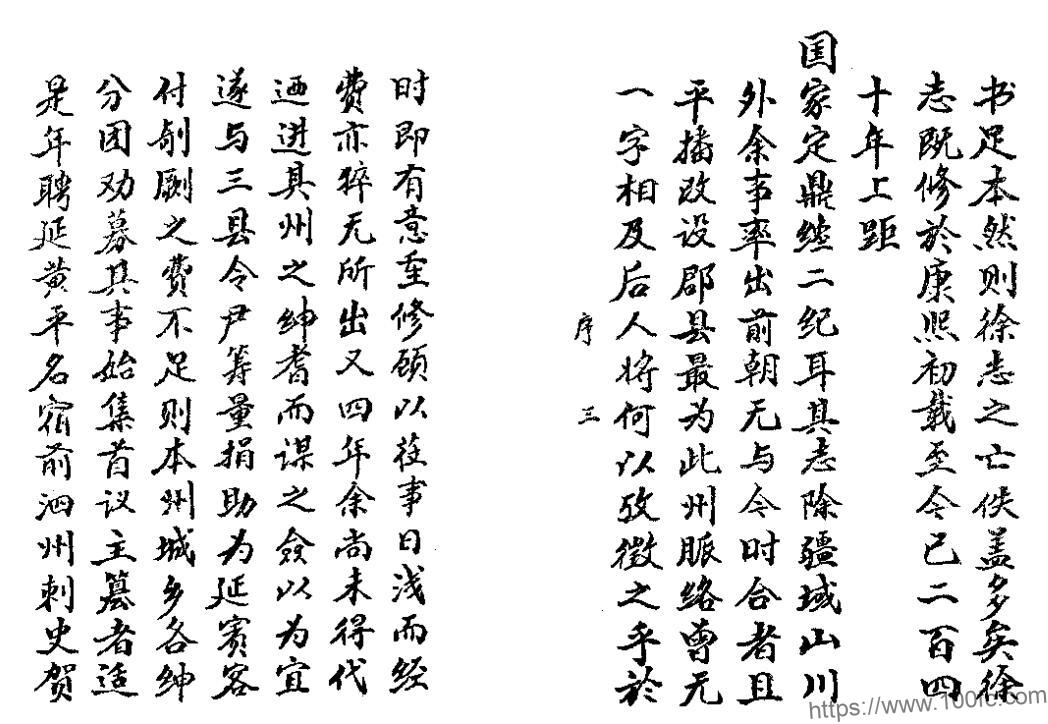 书足本然则徐志之亡佚盖多矣徐
志既修於康熙初载至今已二百四
十年上距
国家定鼎缠二纪耳其志除疆域山川
外余事率出前朝无与今时合者且
平播改设郡县最为此州脈络曾无
一字相及后人将何以攷徵之乎於
序 三
时即有意至修顾以莅事日浅而经
费亦猝无所出又四年余尚未得代
迺进具州之绅耆而谋之佥以为宜
遂与三县令尹筹量捐助为延宾客
付剞劂之费不足则本州城乡各绅
分团劝募其事始集首议主纂者适
是年聘延黄平名宿前泗州刺史贺
https://www.1001c.com